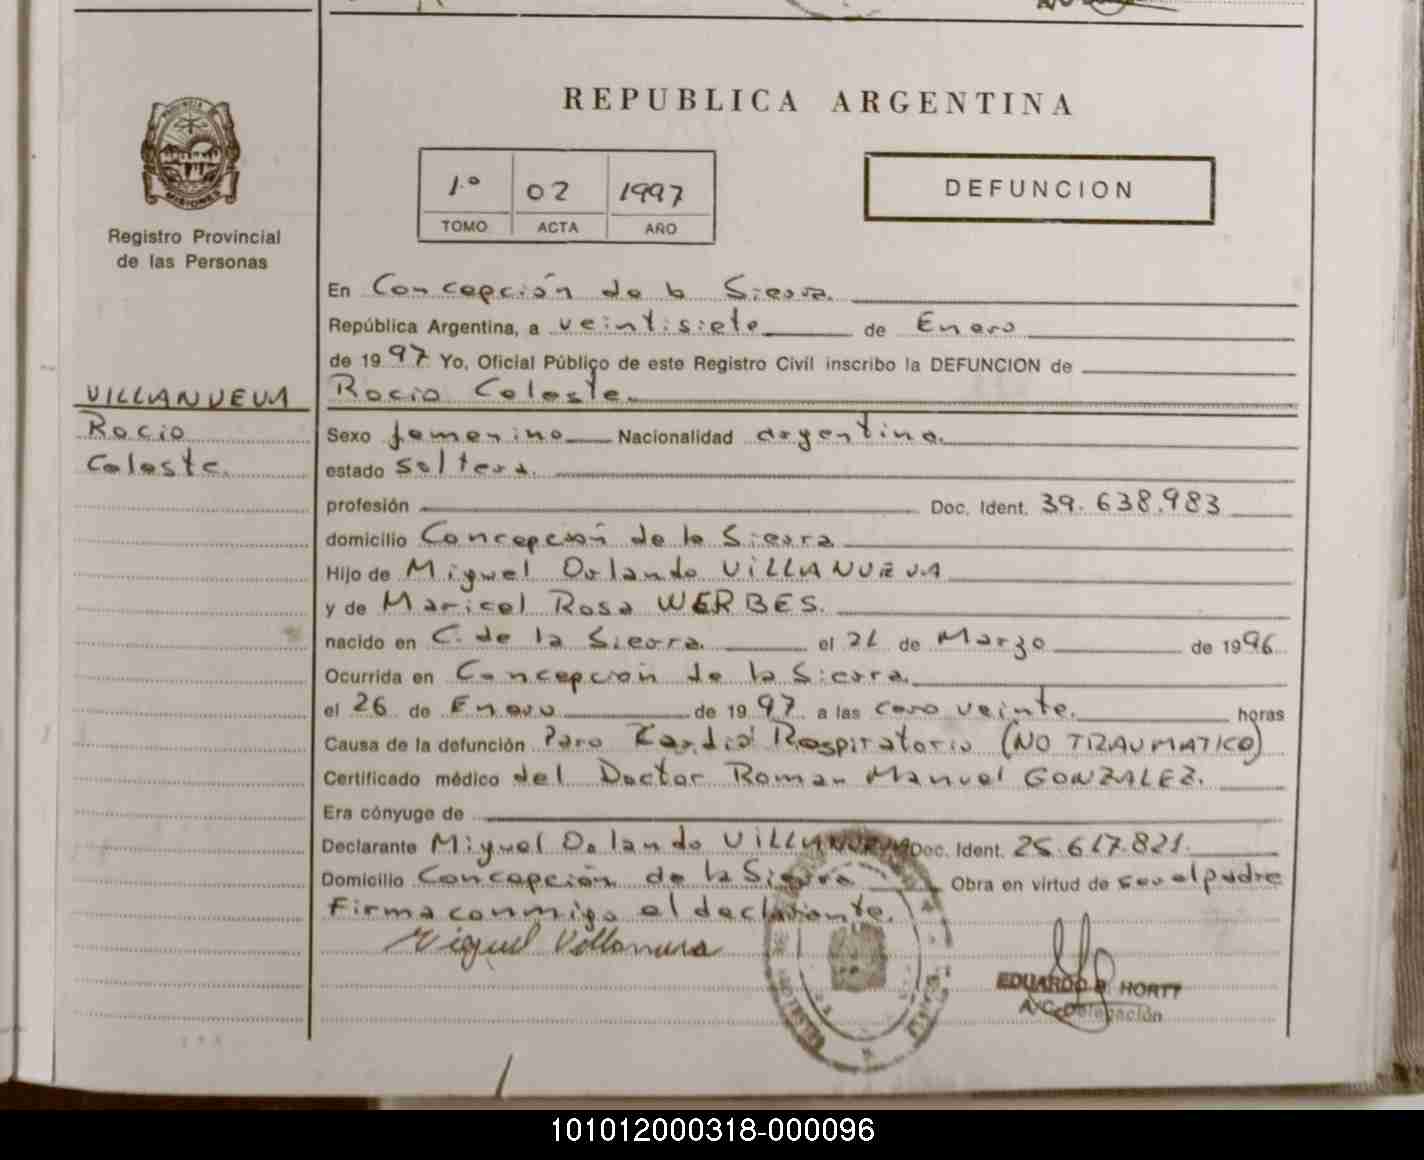 REPUBLICA ARGENTINA
PROVINCIA
MISIONES
Registro Provincial
de las Personas
1º 02 1997
TOMO ACTA AÑO
DEFUNCION
En Concepción de la Sierra.
República Argentina, a veintisiete de Enero
de 1997 Yo, Oficial Público de este Registro Civil inscribo la DEFUNCION de
VILLANUEVA
Rocio
Celeste.
Rocio Celeste.
Sexo femenino Nacionalidad argentina.
estado soltera.
profesión Doc. Ident. 39.638.983
domicilio Concepción de la Sierra
Hijo de Miguel Orlando VILLANUEVA
y de Maricel Rosa WERBES.
nacido en C. de la Sierra. el de Marzo de 1996
Ocurrida en Concepción de la Sierra.
el 26 de Enero de 1997 a las cero veinte. horas
Causa de la defunción Paro Cardio Respiratorio (NO TRAUMATICO)
Certificado médico del Doctor Roman Manuel GONZALEZ.
Era cónyuge de
Declarante Miguel Orlando VILLANUEVA Doc. Ident. 25.617.821.
Domicilio Concepción de la Sierra Obra en virtud de ser el padre
Firma conmigo el declarante.
Miguel Villanueva
EDUARDO HORTT
A/C Delegación
101012000318-000096